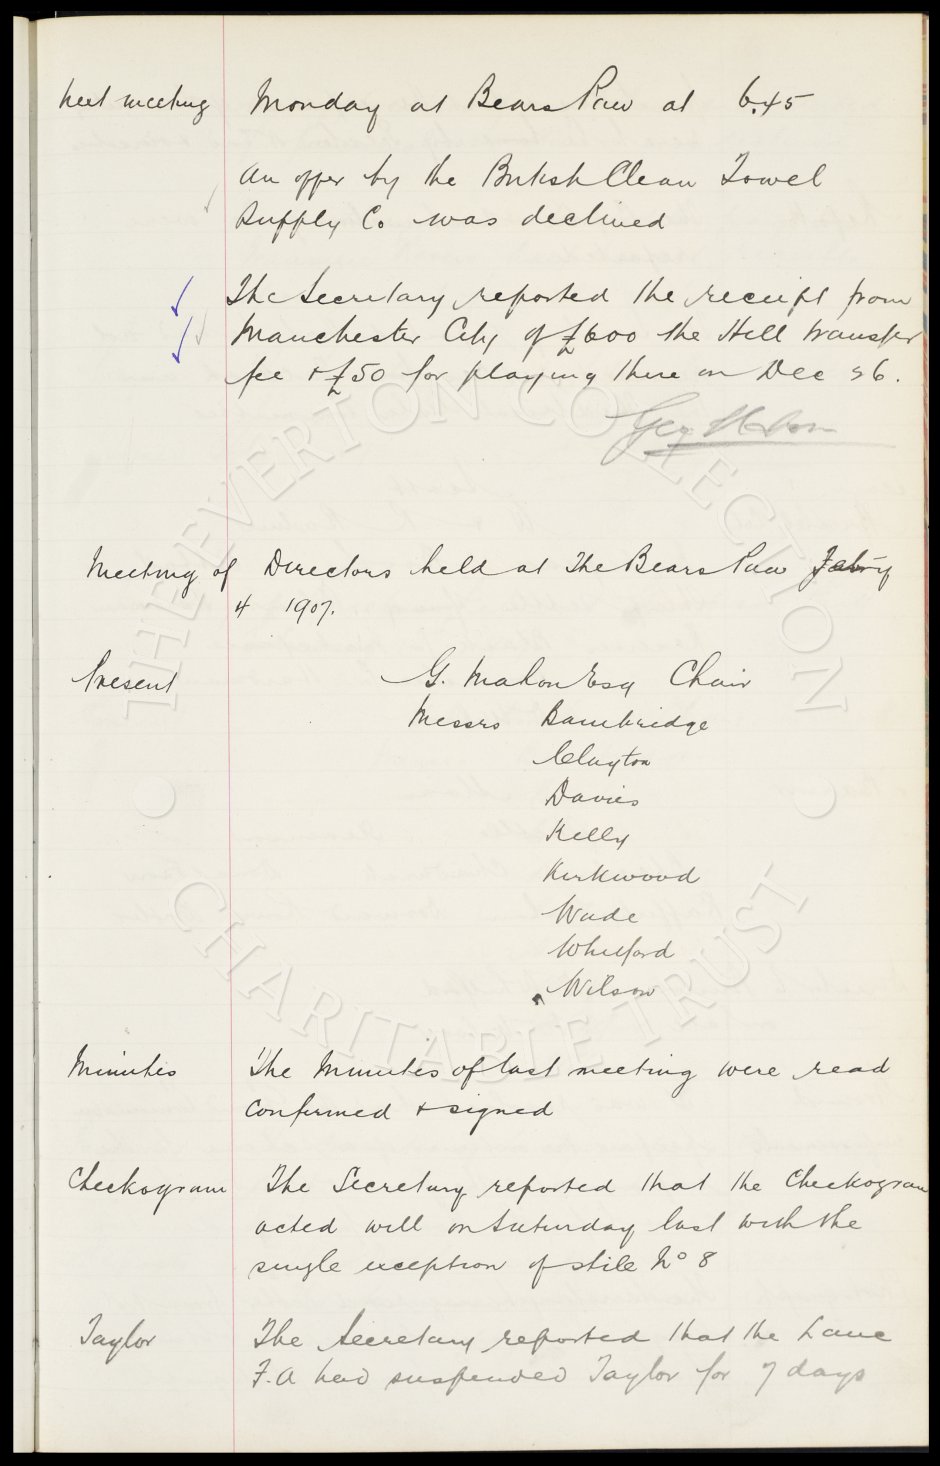 Next meeting Monday at Bears Paw at 6.45
An offer by the British Clean Towel
Supply Co was declined
The Secretary reported the receipt from
Manchester City of £600 the Hill transfer
fee & £50 for playing there on Dec 26.
Geo Mahon
Meeting of Directors held at The Bears Paw Febry
4 1907.
Present G. Mahon Esq Chair
Messrs Bainbridge
Clayton
Davies
Kelly
Kirkwood
Wade
Whitford
Wilson
Minutes The Minutes of last meeting were read
confirmed & signed
Checkogram The Secretary reported that the Checkogram
acted well on Saturday last with the
single exception of stile No 8
Taylor The Secretary reported that the Lanc
F.A had suspended Taylor for 7 days
THE EVERTON COLLECTION
CHARITABLE TRUST